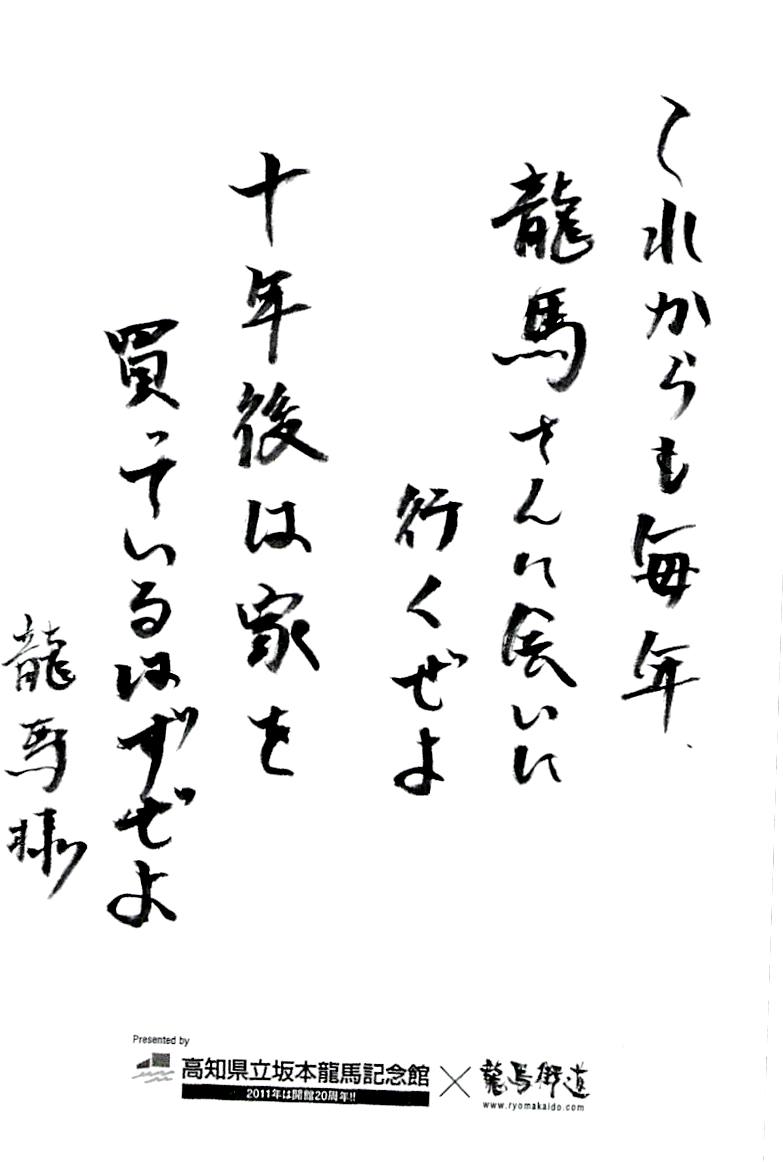 これからも毎年、
龍馬さんに会いに
行くぜよ
十年後は家を
買っているはずぜよ
龍馬様
Presented by
高知県立坂本龍馬記念館×龍馬街道
2011年は開館20周年!!
www.ryomakaido.com